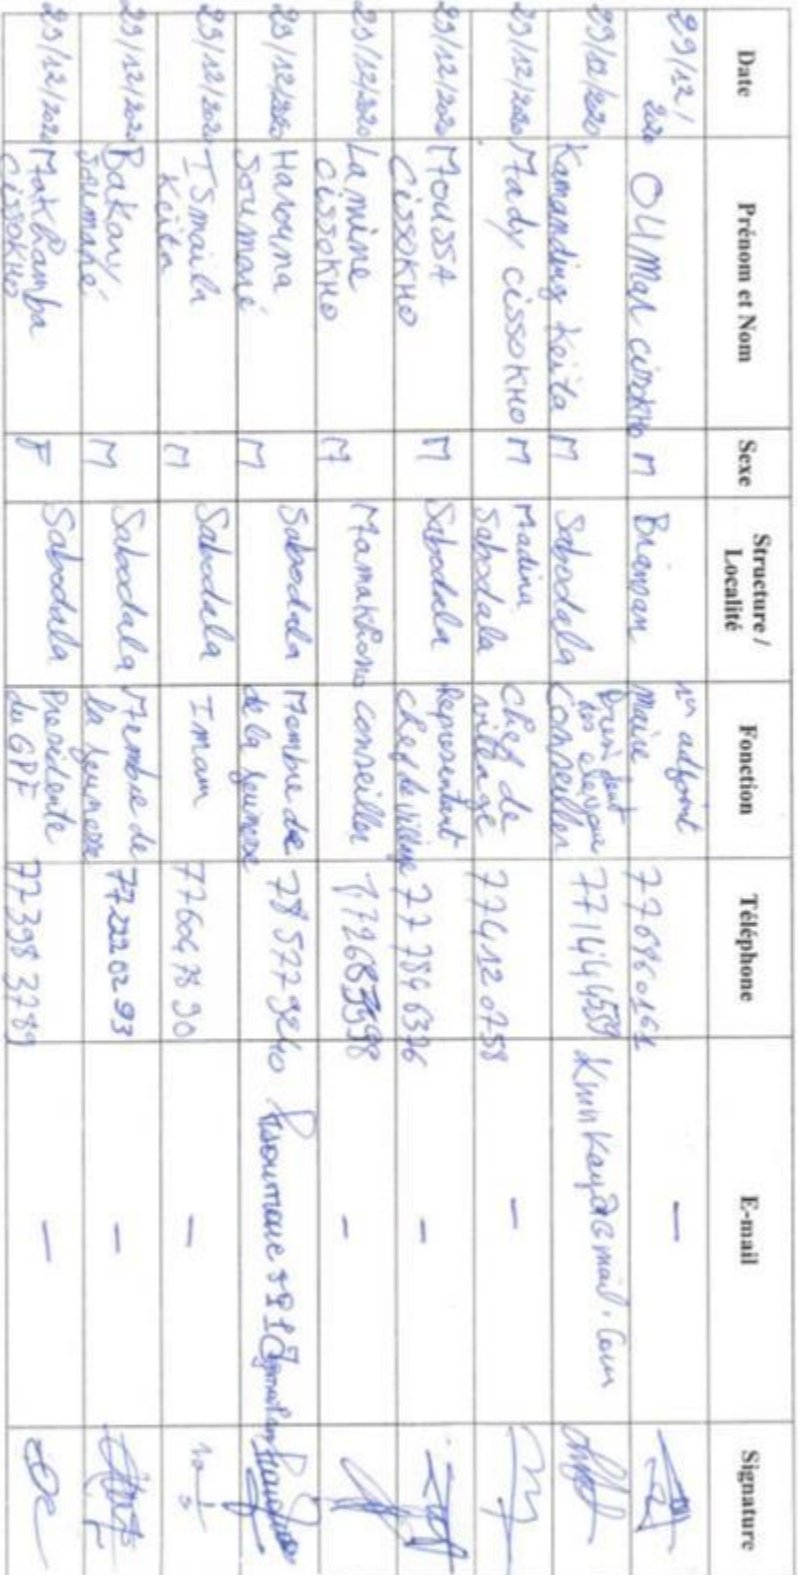 Date Prénom et Nom Sexe Structure / Localité Fonction Téléphone E-mail Signature
29/12/2020 OUMAR CISSOKHO M 1er adjoint maire 776860161 —
29/12/2020 Kamanding Keita M Sabodala Conseiller 771444559
29/12/2020 Mady CISSOKHO M Madina Sabodala Chef de village 774120758 —
29/12/2020 MOUSSA CISSOKHO M Sabodala Representant chef de village 77 784 6376 —
29/12/2020 Lamine CISSOKHO M Mamakhono conseiller —
29/12/2020 Harouna Soumaré M Sabodala Membre de de la jeunesse 78 577 9240
29/12/2020 ISmaila Keita M Sabodala Imam 776047890 —
29/12/2020 Bakary M Sabodala Membre de la jeunesse 772220293 —
29/12/2020 Makhamba CISSOKHO F Sabodala Presidente du GPF 77398 3789 —